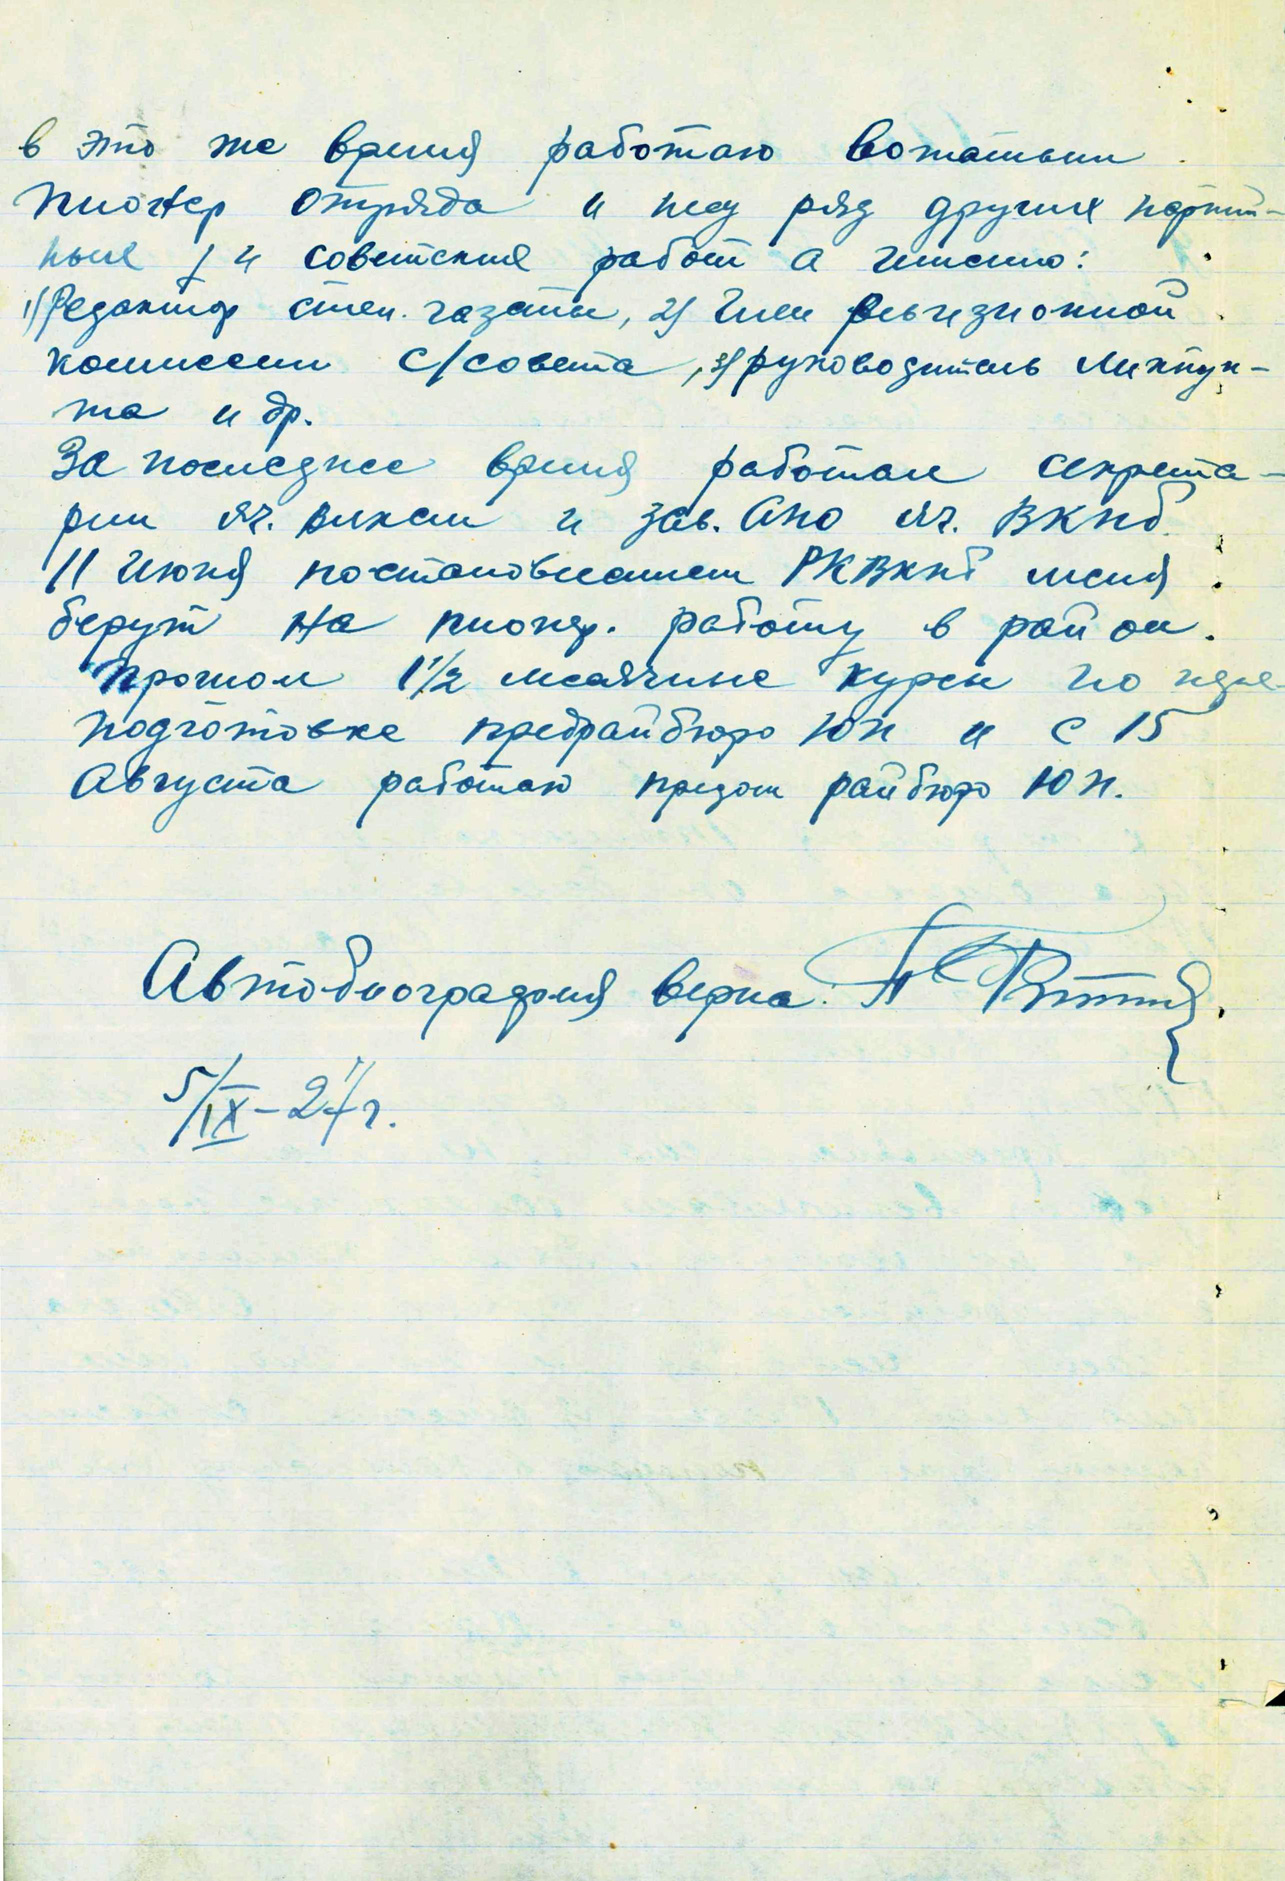 в это же время работаю вожатым
Пионер отряда и несу ряд других партий-
ных и советских работ а именно:
1) Редактор стен. газеты, 2) Член ревизионной
комиссии с/совета, 3) руководитель Ликпун-
кта и др.
За последнее время работал секрета-
рем яч. влксм и зав. АПО яч. ВКПб.
11 Июня постановлением РКВКПб меня
берут на пионер. работу в район.
Прошол 1 1/2 месячные курсы по
подготовке предрайбюро ЮП и с 15
Августа работаю предом райбюро ЮП.
Автобиография верна.
5/IX-27г.